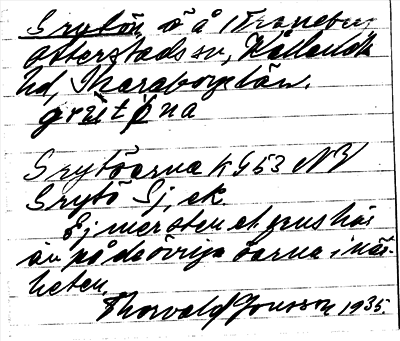 Grytön ö å Traneberg,
Otterstads sn, Kållands
hd, Skaraborgs län.
grɛ̀tǿna
Grytöarna K G53 NV
Grytö Sj, ek.
Ej mer sten et. grus här
än på de övriga öarna i när-
heten.
Thorvald Jonsson 1935.